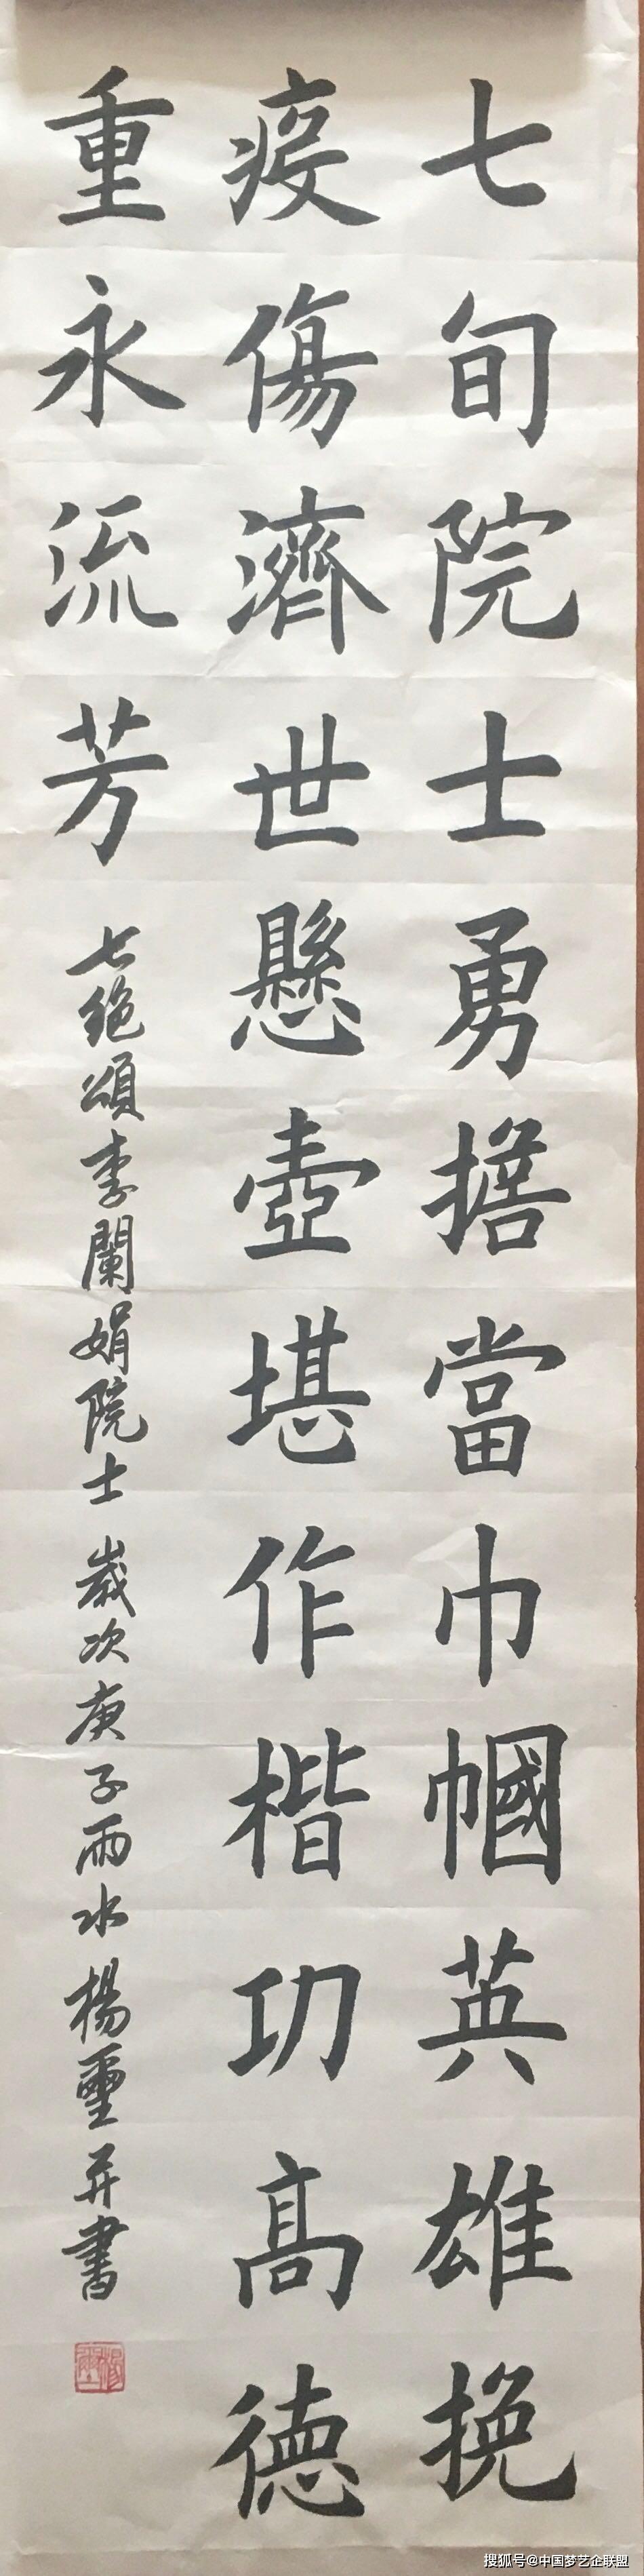 七旬院士勇擔當巾幗英雄挽
疫傷濟世懸壺堪作楷功高德
重永流芳
七绝頌李蘭娟院士 歲次庚子雨水楊璽并書
楊璽
搜狐号@中国梦艺企联盟